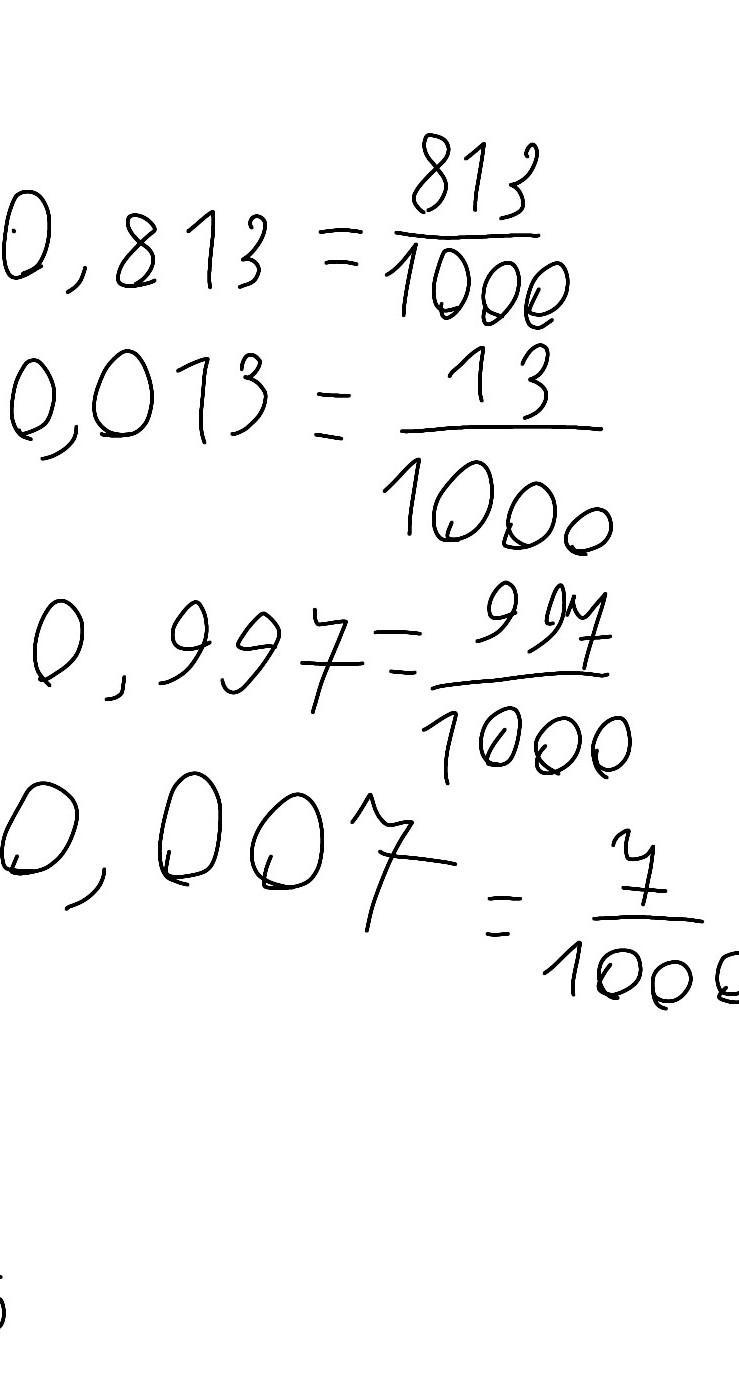 0,813 = 813/1000
0,013 = 13/1000
0,997 = 997/1000
0,007 = 7/1000